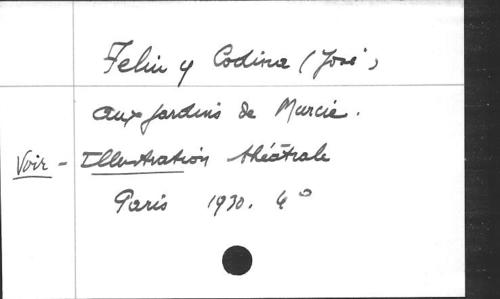 Feliu y Codina (José)
Aux jardins de Murcie.
Voir - Illustration théâtrale
Paris 1930. 4°